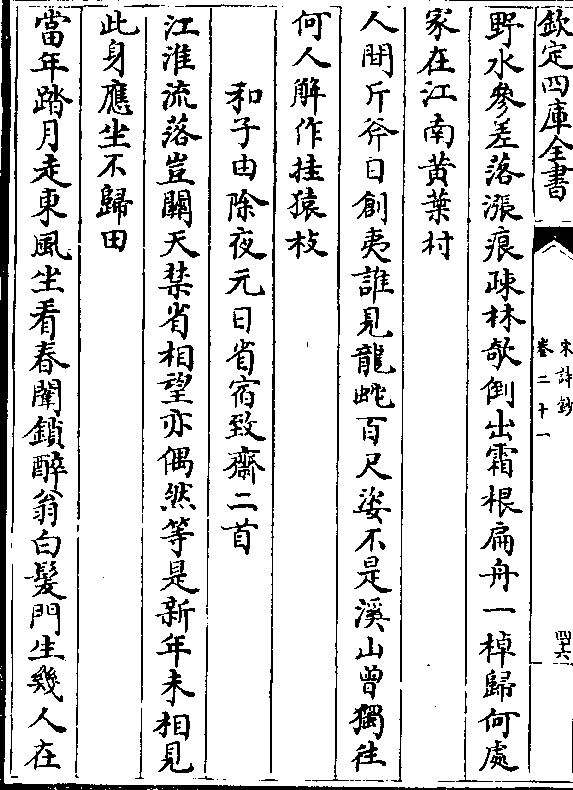 欽定四庫全書
宋詩鈔
卷二十一
四六
野水參差落漲痕疎林欹倒出霜根扁舟一棹歸何處
家在江南黄葉村
人間斤斧日創夷誰見龍虵百尺姿不是溪山曾獨往
何人解作挂猿枝
和子由除夜元日省宿致齋二首
江淮流落豈關天禁省相望亦偶然等是新年未相見
此身應坐不歸田
當年踏月走東風坐看春闈鎖醉翁白髮門生幾人在